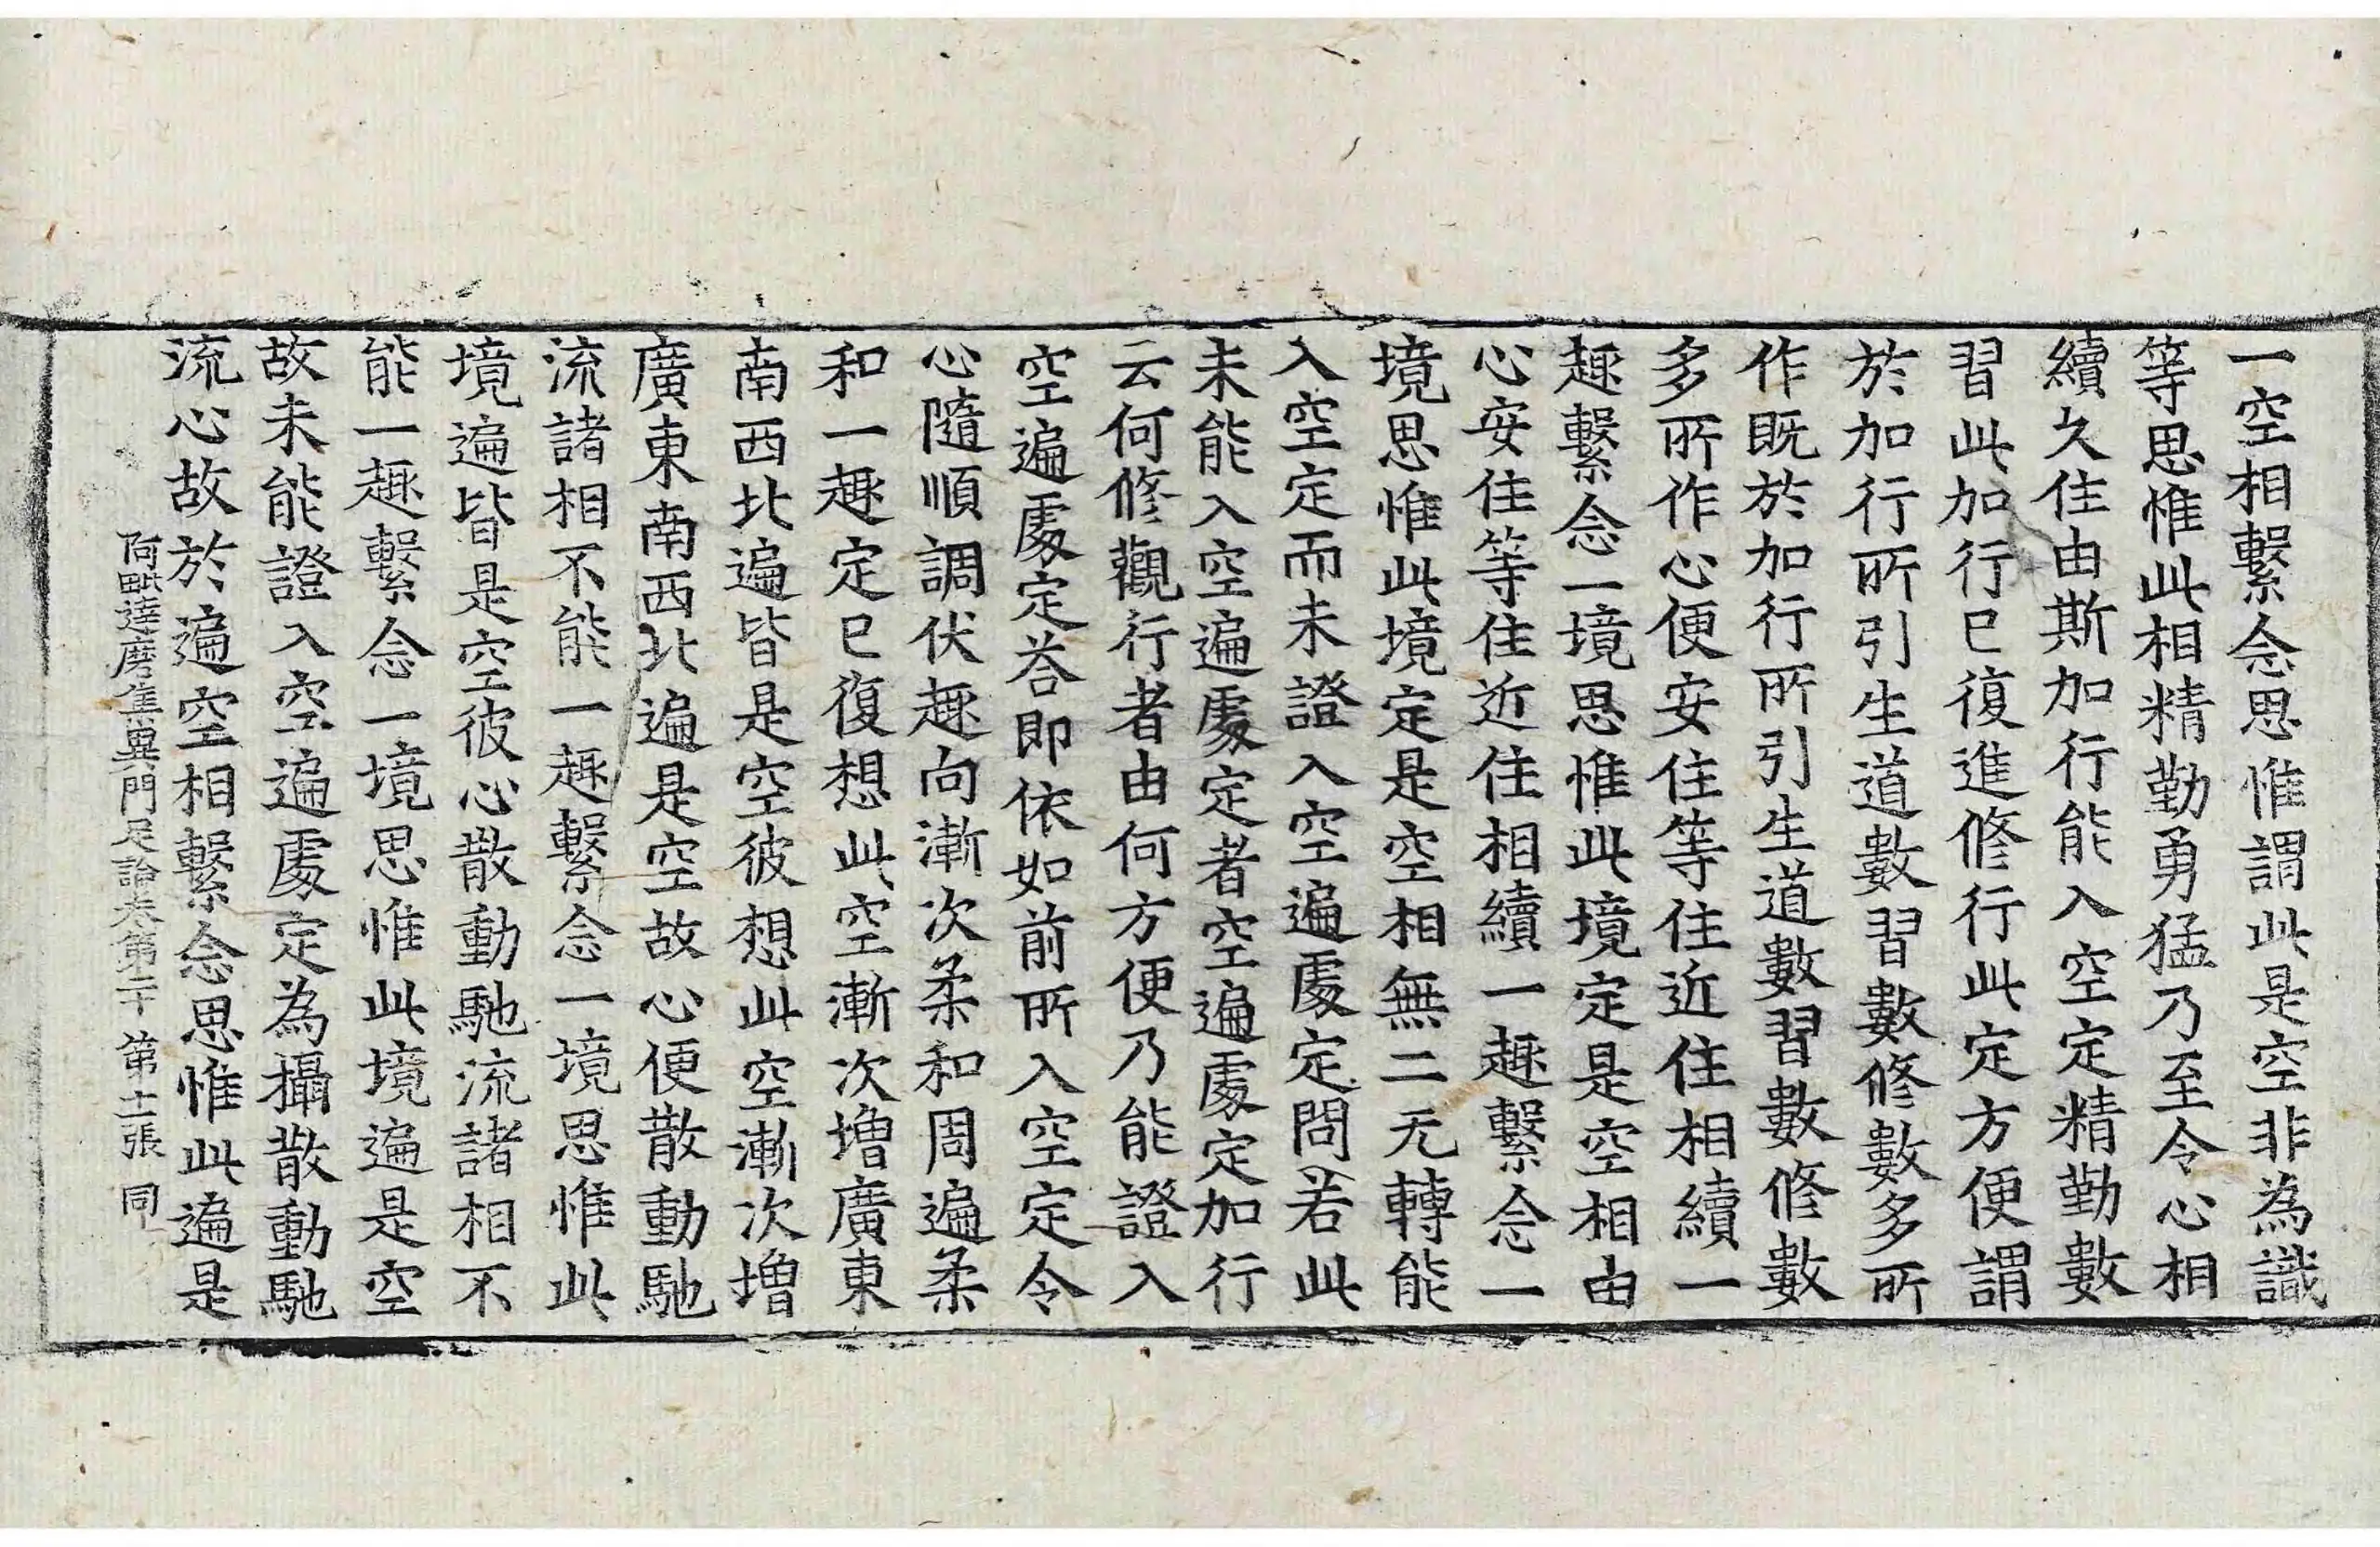 一空相繫念思惟謂此是空非為識
等思惟此相精勤勇猛乃至令心相
續久住由斯加行能入空定精勤數
習此加行已復進修行此定方便謂
於加行所引生道數習數修數多所
作既於加行所引生道數習數修數
多所作心便安住等住近住相續一
趣繫念一境思惟此境定是空相由
心安住等住近住相續一趣繫念一
境思惟此境定是空相無二无轉能
入空定而未證入空遍處定問若此
未能入空遍處定者空遍處定加行
云何修觀行者由何方便乃能證入
空遍處定荅即依如前所入空定令
心隨順調伏趣向漸次柔和周遍柔
和一趣定已復想此空漸次增廣東
南西北遍皆是空彼想此空漸次增
廣東南西北遍是空故心便散動馳
流諸相不能一趣繫念一境思惟此
境遍皆是空彼心散動馳流諸相不
能一趣繫念一境思惟此境遍是空
故未能證入空遍處定為攝散動馳
流心故於遍空相繫念思惟此遍是
阿毗達磨集異門足論卷第二十 第十二張 同